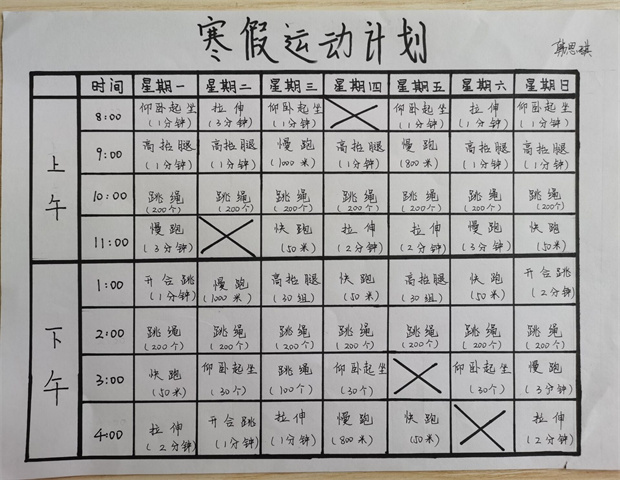 寒假运动计划
韩思琪
时间 星期一 星期二 星期三 星期四 星期五 星期六 星期日
上午
8:00 仰卧起坐 拉伸 仰卧起坐 仰卧起坐 拉伸 仰卧起坐
(1分钟) (3分钟) (1分钟) (1分钟) (1分钟) (1分钟)
9:00 高抬腿 高抬腿 慢跑 高抬腿 慢跑 高抬腿 高抬腿
(1分钟) (1分钟) (1000米) (1分钟) (800米) (1分钟) (1分钟)
10:00 跳绳 跳绳 跳绳 跳绳 跳绳 跳绳 跳绳
(200个) (200个) (200个) (200个) (200个) (200个) (200个)
11:00 慢跑 快跑 拉伸 拉伸 慢跑 快跑
(3分钟) (50米) (2分钟) (2分钟) (3分钟) (50米)
下午
1:00 开合跳 慢跑 高抬腿 快跑 高抬腿 快跑 开合跳
(1分钟) (1000米) (30组) (50米) (30组) (50米) (2分钟)
2:00 跳绳 跳绳 跳绳 跳绳 跳绳 跳绳 跳绳
(200个) (200个) (200个) (200个) (200个) (200个) (200个)
3:00 快跑 仰卧起坐 跳绳 仰卧起坐 仰卧起坐 慢跑
(50米) (30个) (100个) (30个) (30个) (3分钟)
4:00 拉伸 开合跳 拉伸 慢跑 快跑 拉伸
(2分钟) (1分钟) (1分钟) (800米) (50米) (2分钟)